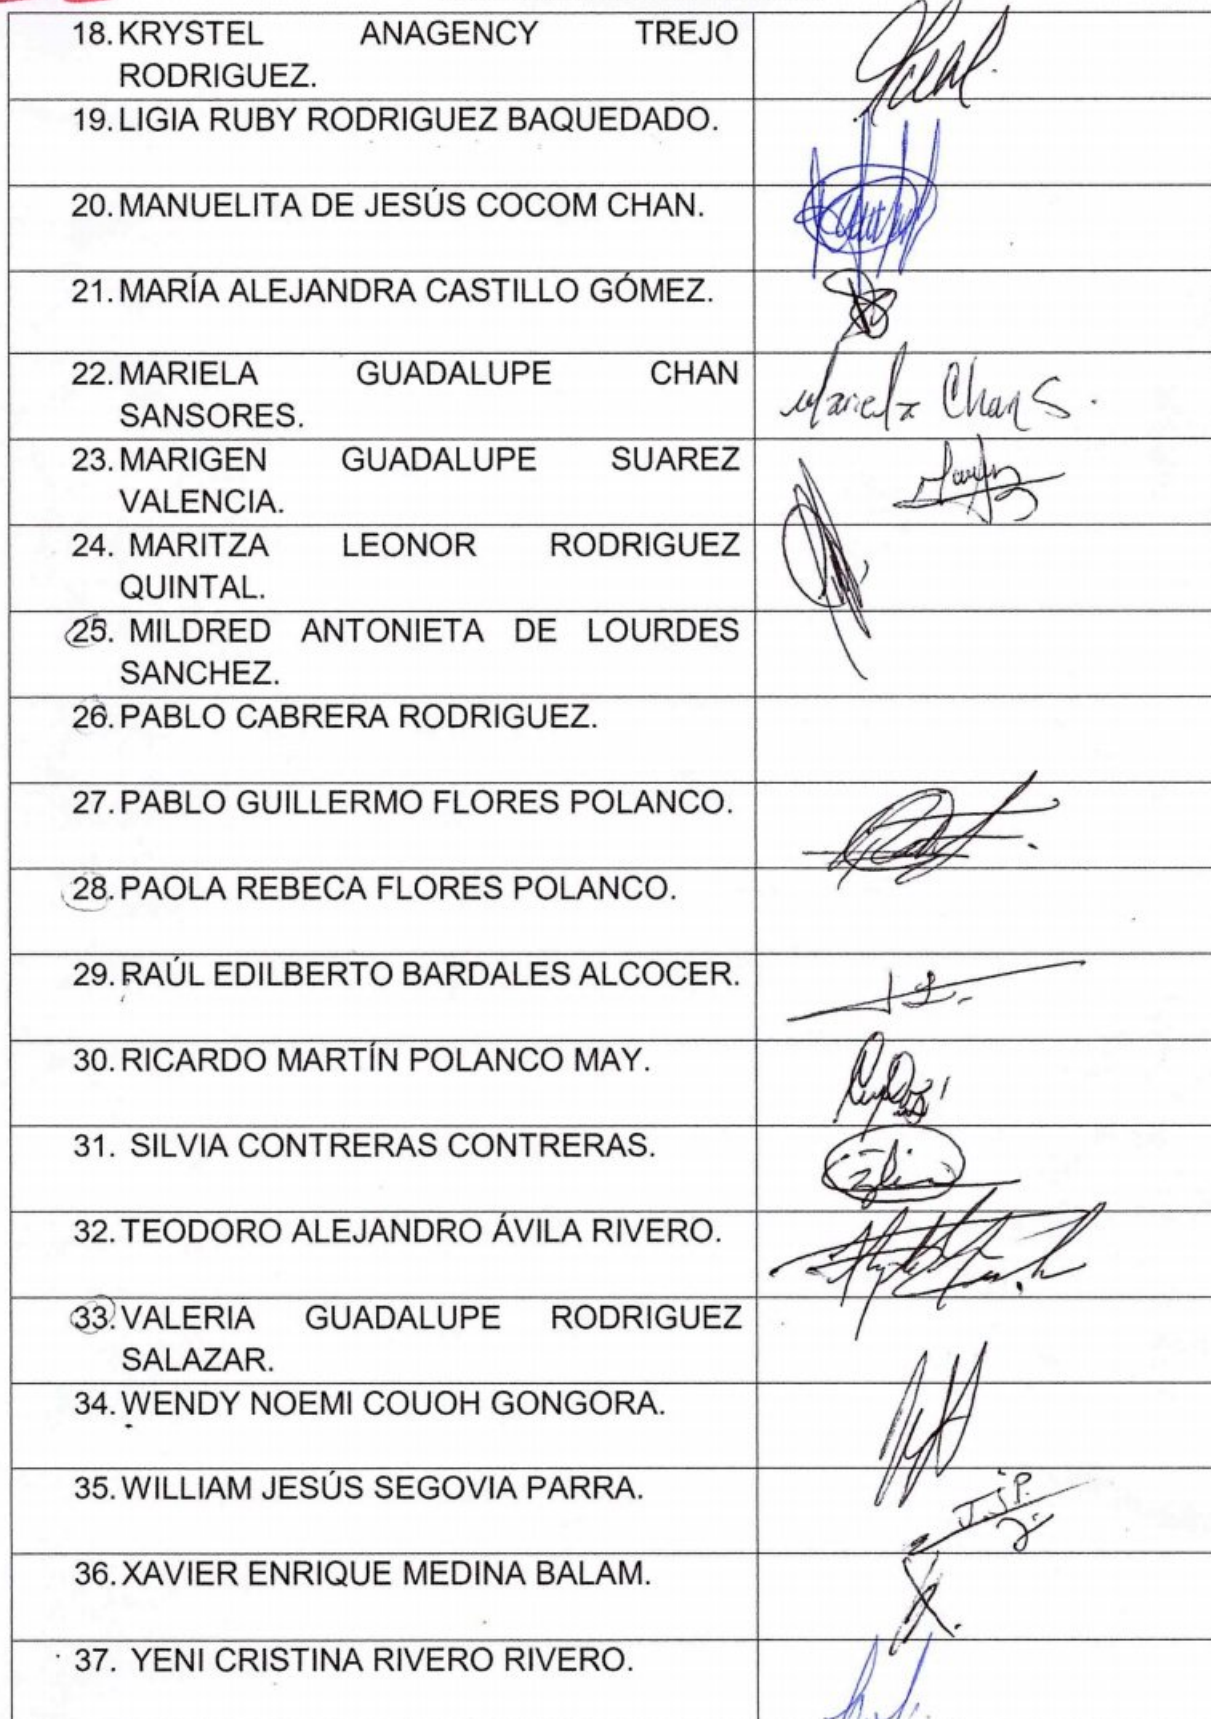 18. KRYSTEL ANAGENCY TREJO
RODRIGUEZ.
19. LIGIA RUBY RODRIGUEZ BAQUEDADO.
20. MANUELITA DE JESÚS COCOM CHAN.
21. MARÍA ALEJANDRA CASTILLO GÓMEZ.
22. MARIELA GUADALUPE CHAN
SANSORES.
Mariela Chan S.
23. MARIGEN GUADALUPE SUAREZ
VALENCIA.
24. MARITZA LEONOR RODRIGUEZ
QUINTAL.
25. MILDRED ANTONIETA DE LOURDES
SANCHEZ.
26. PABLO CABRERA RODRIGUEZ.
27. PABLO GUILLERMO FLORES POLANCO.
28. PAOLA REBECA FLORES POLANCO.
29. RAÚL EDILBERTO BARDALES ALCOCER.
30. RICARDO MARTÍN POLANCO MAY.
31. SILVIA CONTRERAS CONTRERAS.
32. TEODORO ALEJANDRO ÁVILA RIVERO.
33. VALERIA GUADALUPE RODRIGUEZ
SALAZAR.
34. WENDY NOEMI COUOH GONGORA.
35. WILLIAM JESÚS SEGOVIA PARRA.
36. XAVIER ENRIQUE MEDINA BALAM.
37. YENI CRISTINA RIVERO RIVERO.